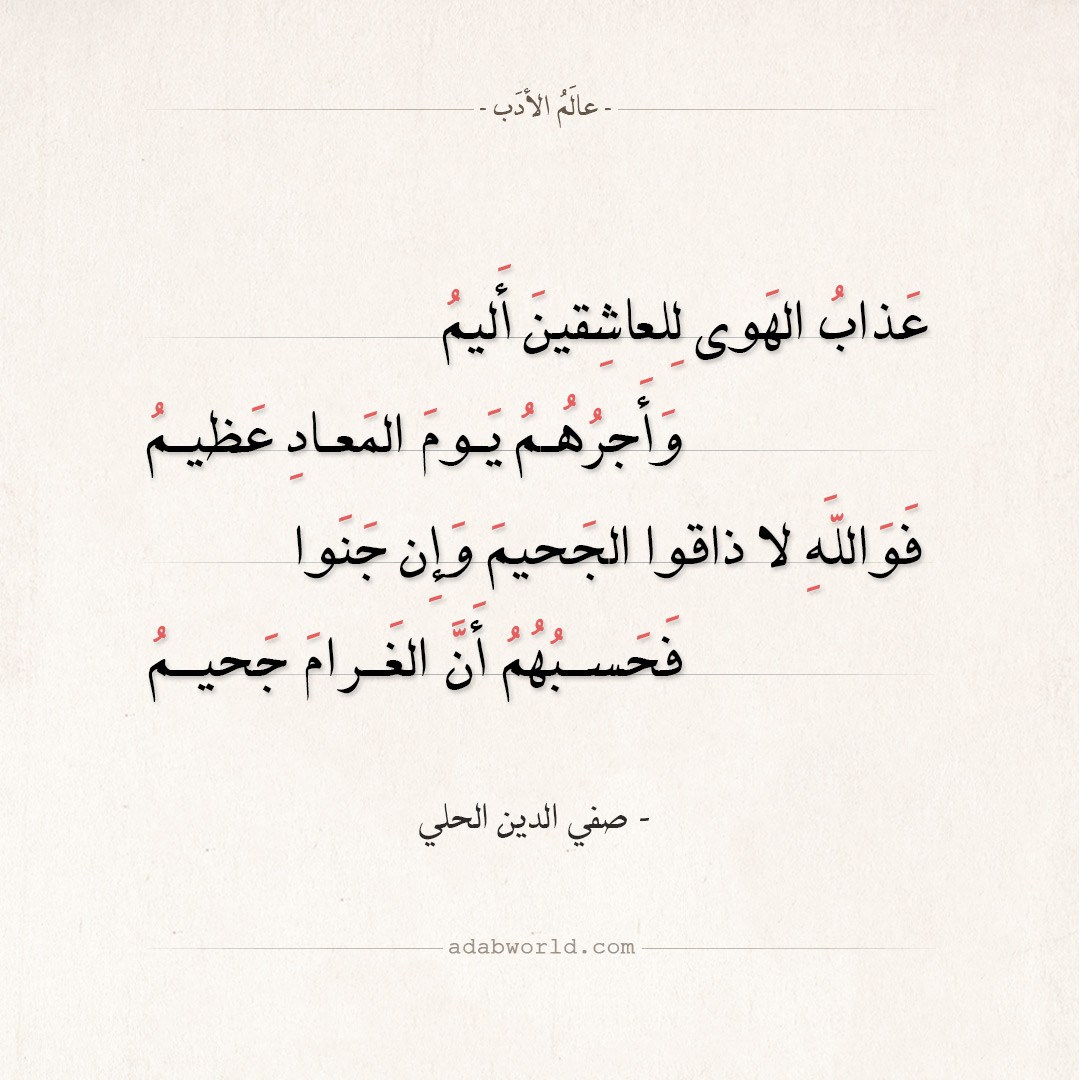 - عالَمُ الأدَب -
عَذابُ الهَوى لِلعاشِقينَ أَليمُ
وَأَجرُهُمُ يَومَ المَعادِ عَظيمُ
فَوَاللَّهِ لا ذاقوا الجَحيمَ وَإِن جَنَوا
فَحَسبُهُمُ أَنَّ الغَرامَ جَحيمُ
- صفي الدين الحلي
adabworld.com